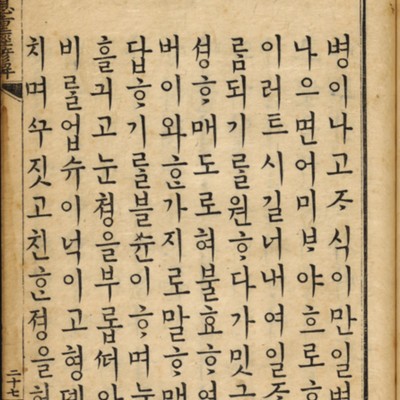 병이나고ᄌᆞ식이만일병
나으면어미ᄇᆞ야흐로
이러트시길너내여일
ᄅᆞᆷ되기ᄅᆞᆯ원ᄒᆞ다가밋
셩ᄒᆞ매도로혀불효ᄒᆞ여
버이와ᄒᆞᆫ가지로말ᄒᆞ매
답ᄒᆞ기ᄅᆞᆯ블슌이ᄒᆞ며눈
흘긔고눈쳥을부롭ᄯᅥ
비ᄅᆞᆯ업슈이넉이고형뎨
치며ᄭᅮ짓고친ᄒᆞᆫ졍을
二十七